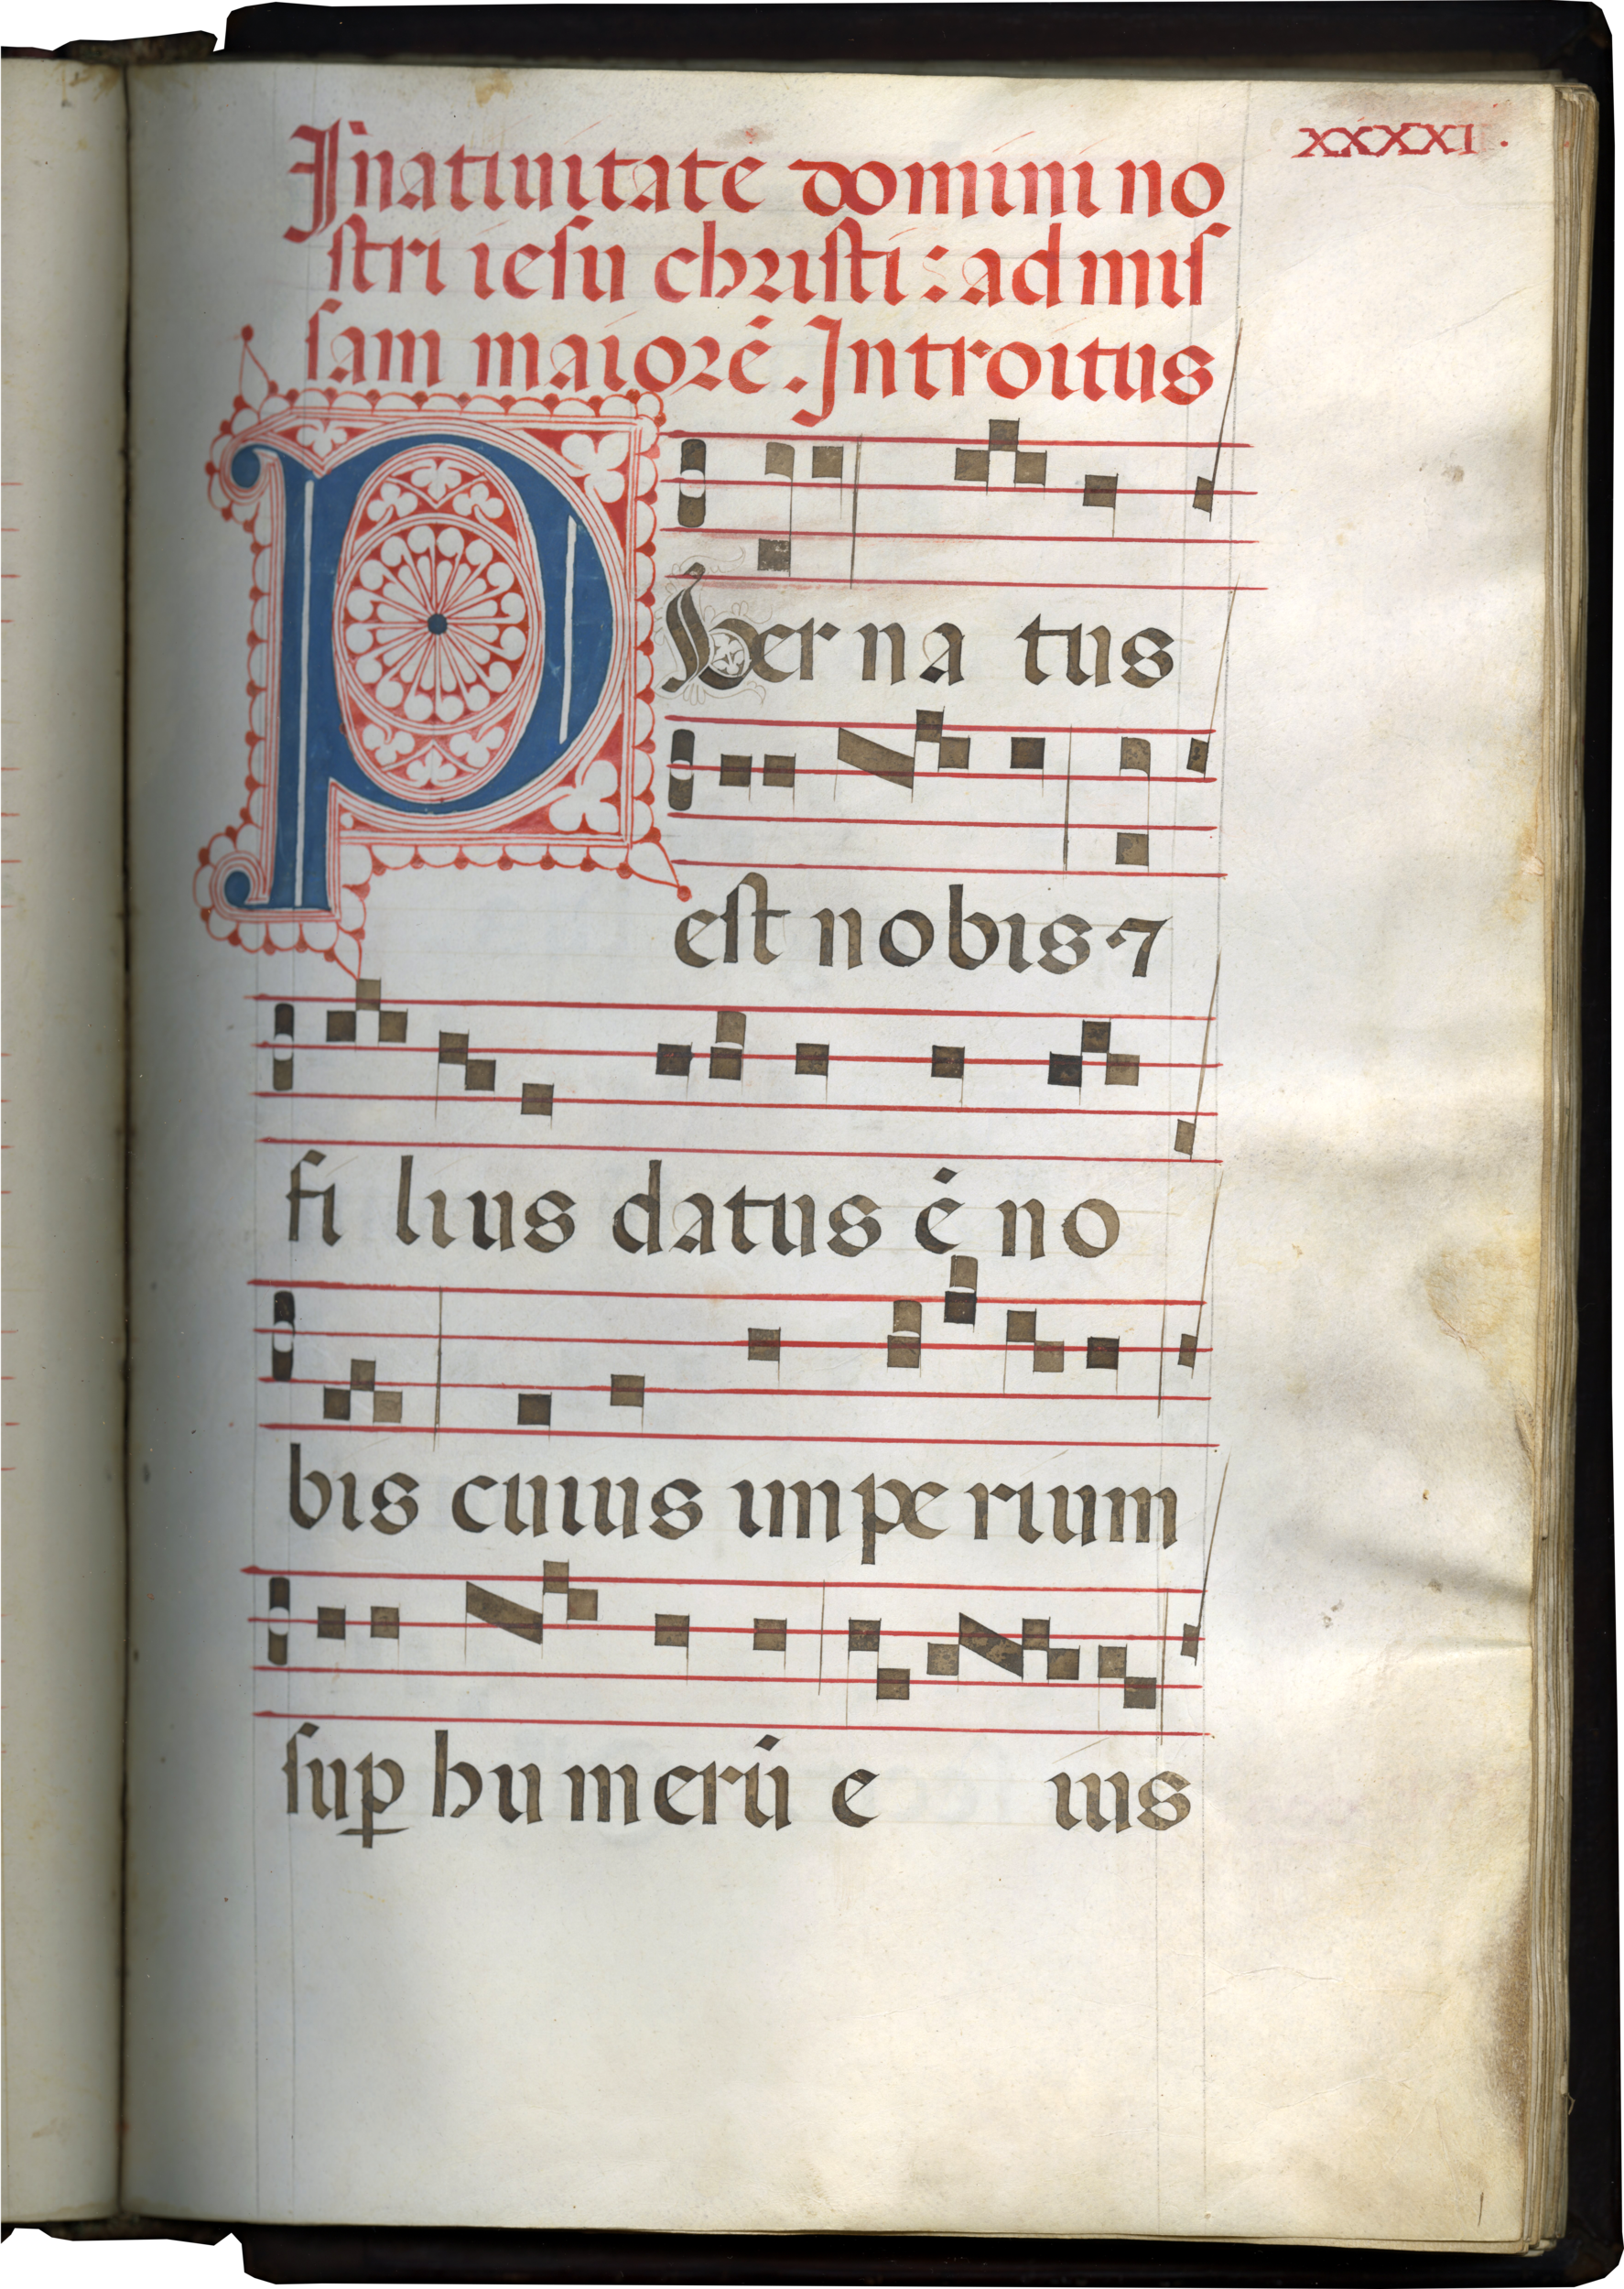 xxxxı.
Jn̄atiuitate domini no
ſtri ieſu chriſti: ad miſ
ſam maiorē. Introitus
P
her na tus
eſt nobis ⁊
fi lius datus ē no
bis cuius impe rium
ſuꝑ hu merū e ius